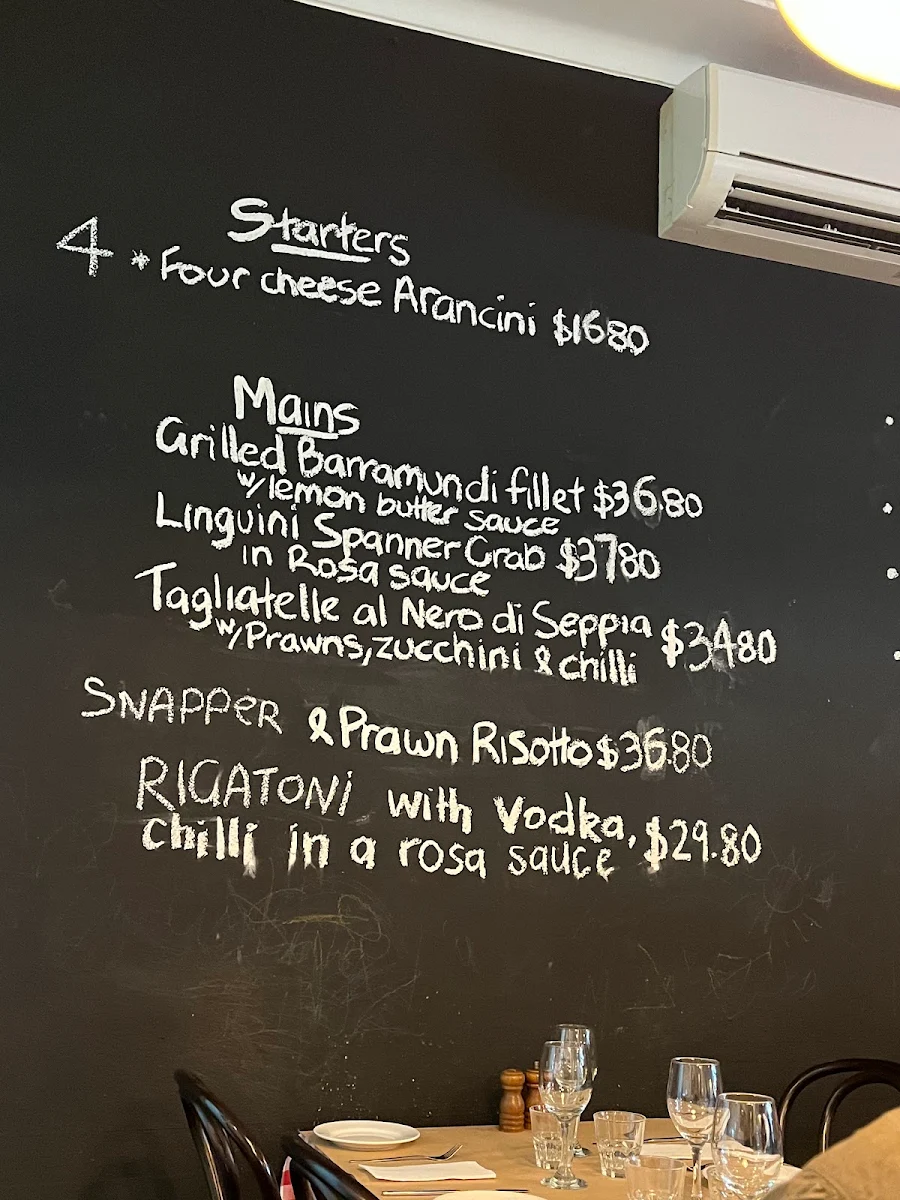 Starters
4 * Four cheese Arancini $16.80
Mains
Grilled Barramundi fillet $36.80
w/lemon butter sauce
Linguini Spanner Crab $37.80
in Rosa sauce
Tagliatelle al Nero di Seppia $34.80
w/Prawns, zucchini & chilli
SNAPPER & Prawn Risotto $36.80
RIGATONi with Vodka,
chilli in a rosa sauce $29.80